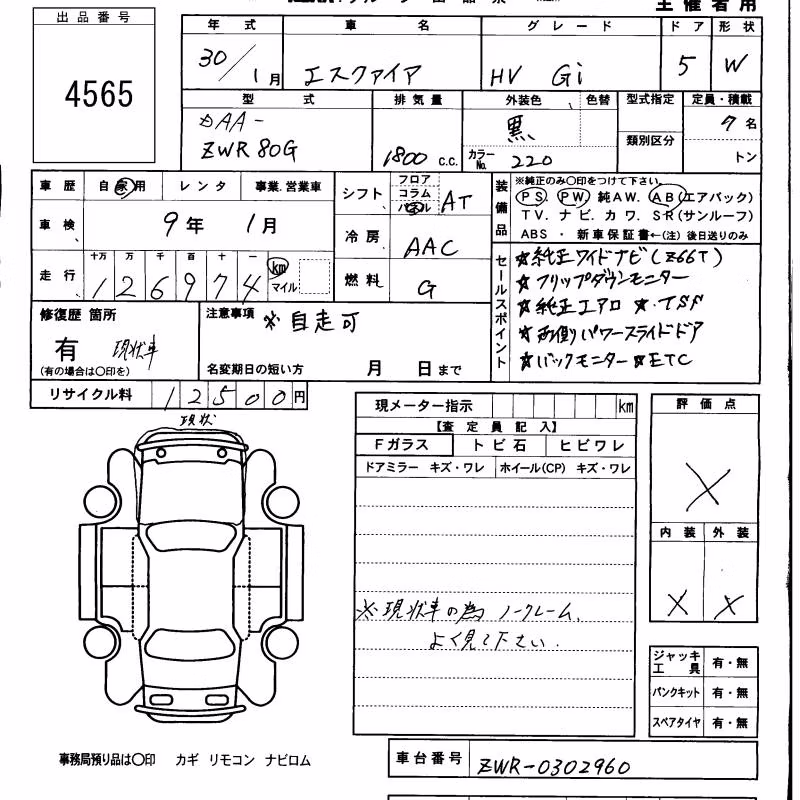 主催者用
出品番号
4565
年式 車名 グレード ドア 形状
30/1月 エスクァイア HV Gi 5 W
型式 排気量 外装色 色替 型式指定 定員・積載
DAA-
ZWR80G
1800 C.C.
黒
カラーNo. 220
類別区分
7名
トン
車歴 自家用 レンタ 事業.営業車
車検 9年 1月
走行 十万 万 千 百 十 一
126974 km マイル
シフト フロア コラム パネル AT
冷房 AAC
燃料 G
装備品 ※純正のみ〇印をつけて下さい。
PS. PW. 純AW. AB(エアバック)
TV. ナビ. カワ. SR(サンルーフ)
ABS ・ 新車保証書←(注) 後日送りのみ
セールスポイント
★純正ワイドナビ(Z66T)
★フリップダウンモニター
★純正エアロ ★・TSS
★両側パワースライドドア
★バックモニター ★ETC
修復歴 箇所
有 現状車
(有の場合は〇印を)
注意事項 ※自走可
名変期日の短い方 月 日まで
リサイクル料 12500円
現状
現メーター指示 km
【査定員記入】
Fガラス トビ石 ヒビワレ
ドアミラー キズ・ワレ ホイール(CP) キズ・ワレ
※現状車の為 ノークレーム.
よく見て下さい.
評価点
X
内装 外装
X X
ジャッキ工具 有・無
パンクキット 有・無
スペアタイヤ 有・無
事務局預り品は〇印 カギ リモコン ナビロム
車台番号 ZWR-0302960